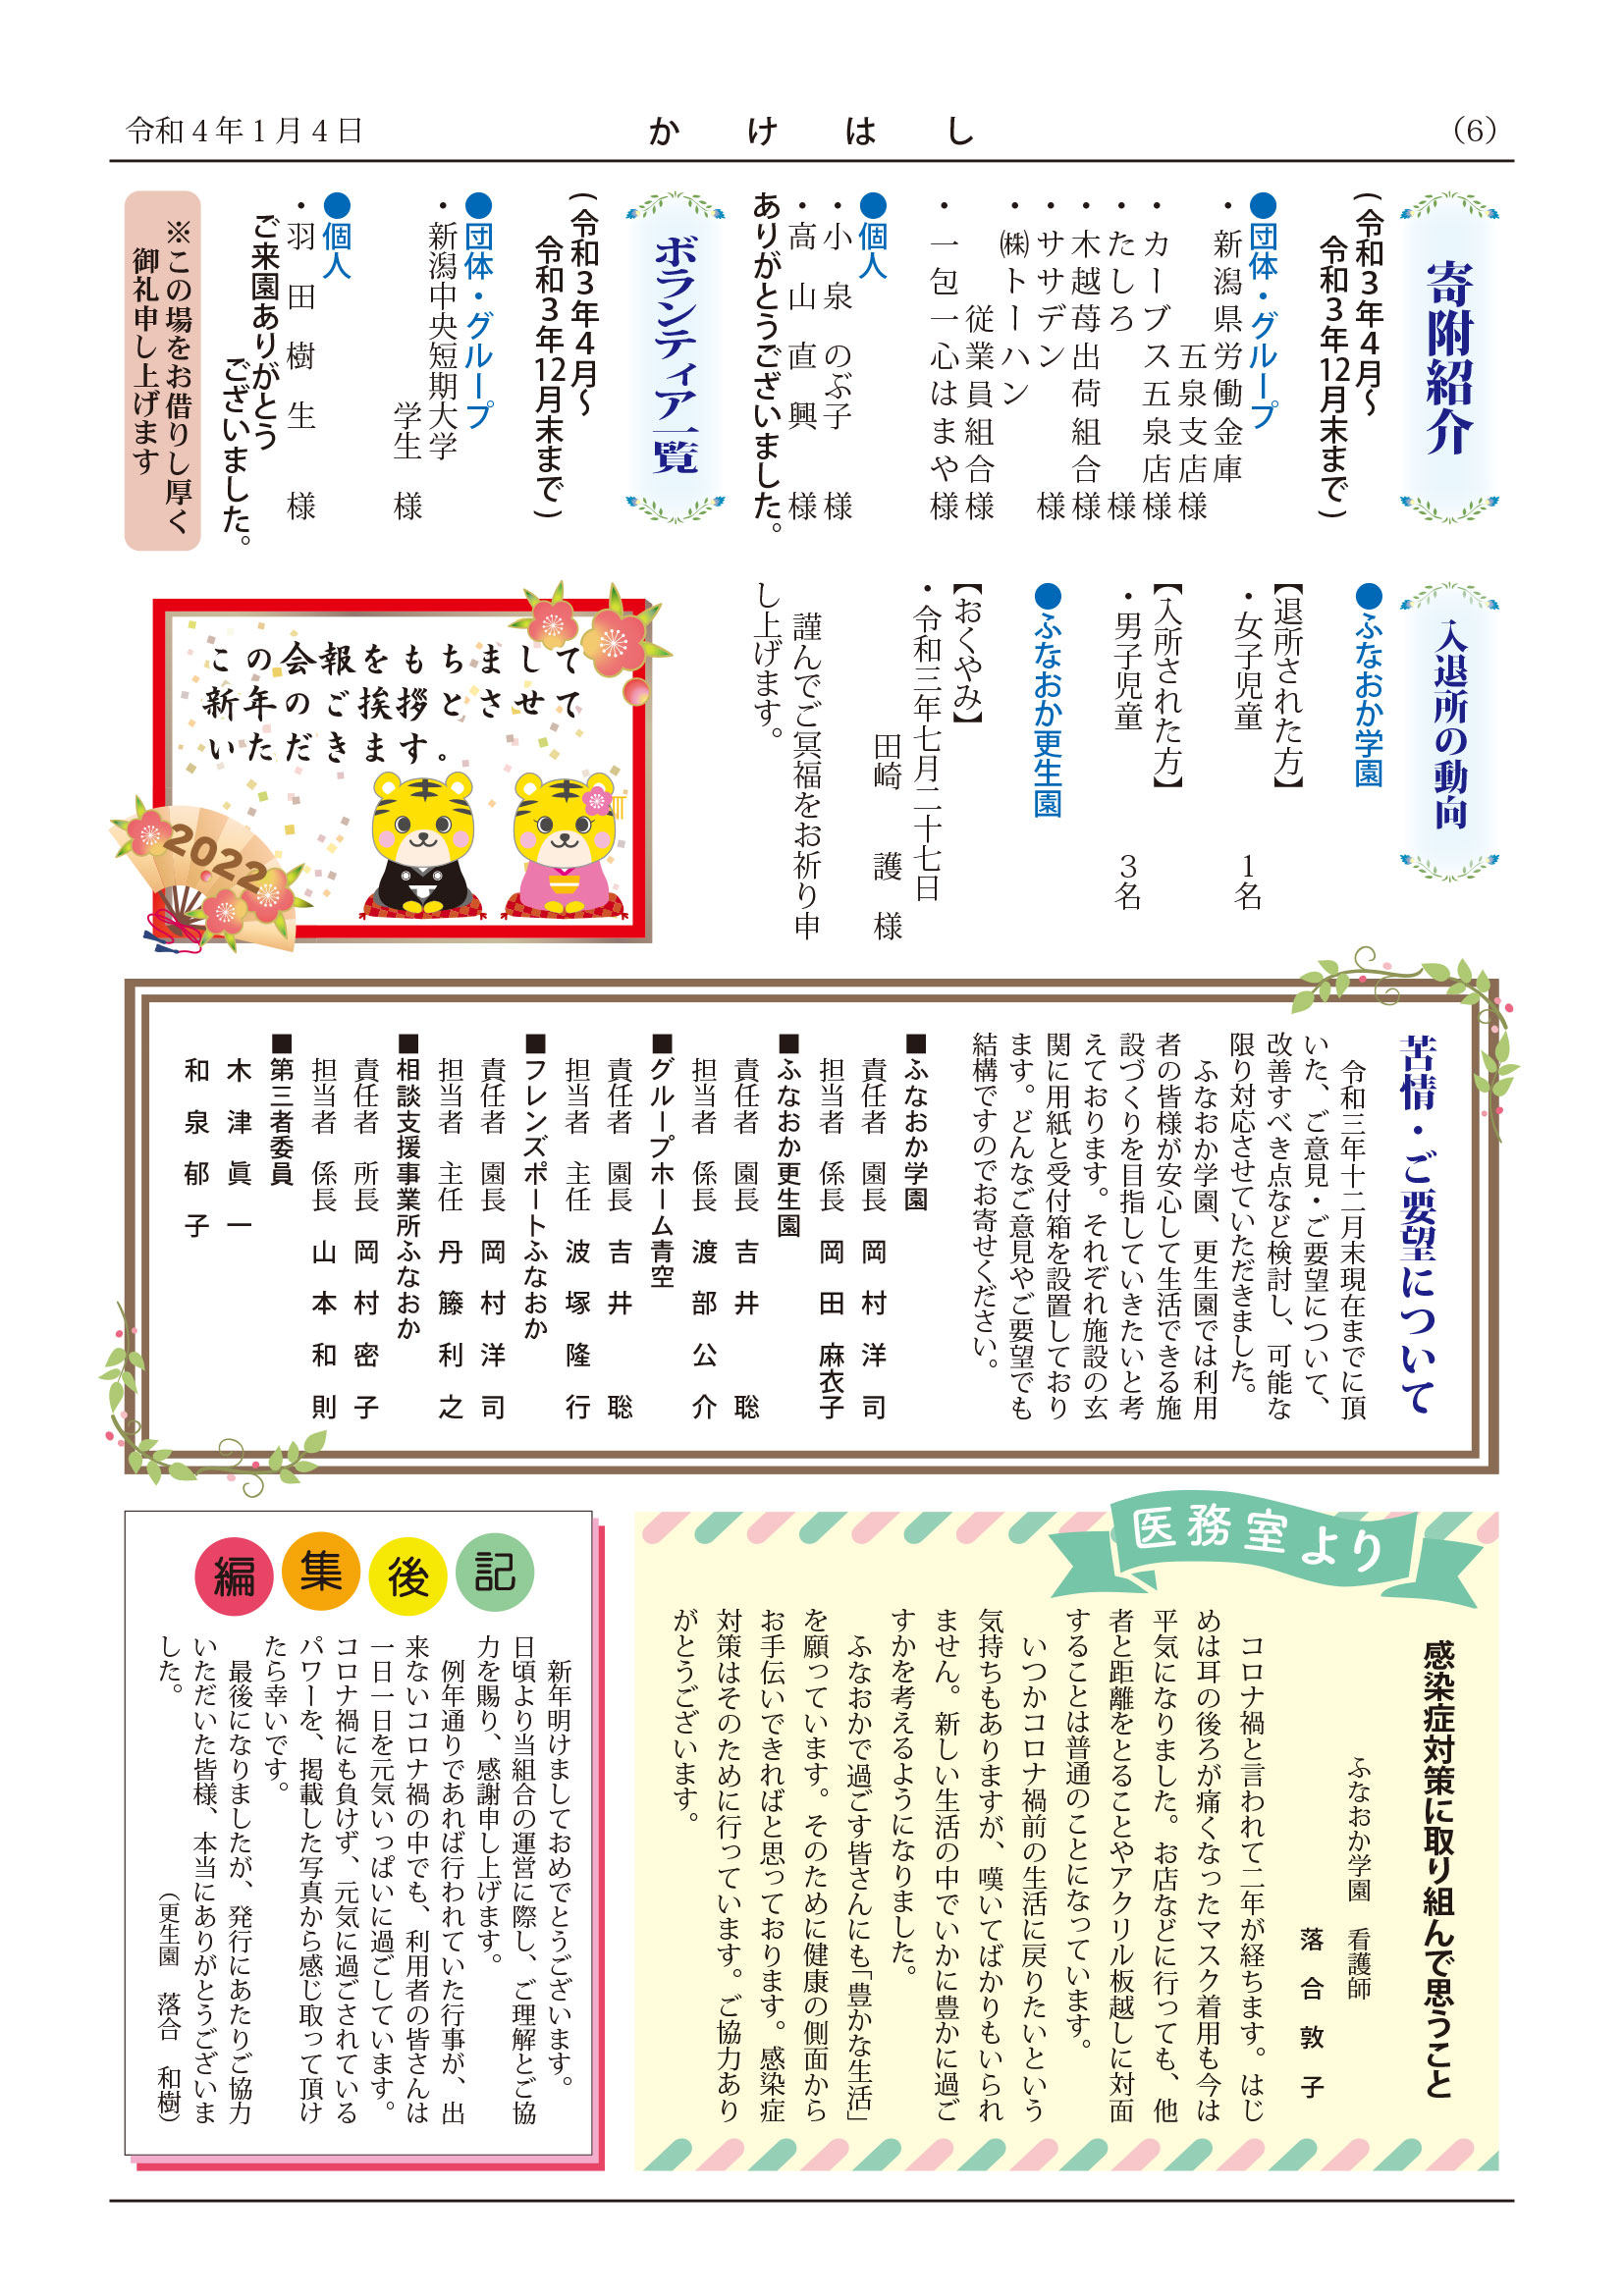 (6)
かけはし
令和4年1月4日
寄附紹介
(令和3年4月〜
令和3年12月末まで)
●団体・グループ
・新潟県労働金庫
五泉支店様
・カーブス五泉店様
・たしろ 様
・木越苺出荷組合様
・ササデン 様
・㈱トーハン
従業員組合様
・一包一心はまや様
●個人
・小泉 のぶ子 様
・高山直興 様
ありがとうございました。
ボランティア一覧
(令和3年4月〜
令和3年12月末まで)
●団体・グループ
・新潟中央短期大学
学生 様
●個人
・羽田樹生 様
ご来園ありがとう
ございました。
※この場をお借りし厚く
御礼申し上げます
入退所の動向
●ふなおか学園
【退所された方】
・女子児童 1名
【入所された方】
・男子児童 3名
●ふなおか更生園
【おくやみ】
・令和三年七月二十七日
田崎 護 様
謹んでご冥福をお祈り申
し上げます。
この会報をもちまして
新年のご挨拶とさせて
いただきます。
2022
苦情・ご要望について
令和三年十二月末現在までに頂
いた、ご意見・ご要望について、
改善すべき点など検討し、可能な
限り対応させていただきました。
ふなおか学園、更生園では利用
者の皆様が安心して生活できる施
設づくりを目指していきたいと考
えております。それぞれ施設の玄
関に用紙と受付箱を設置しており
ます。どんなご意見やご要望でも
結構ですのでお寄せください。
■ふなおか学園
責任者 園長 岡村洋司
担当者 係長 岡田麻衣子
■ふなおか更生園
責任者 園長 吉井 聡
担当者 係長 渡部公介
■グループホーム青空
責任者 園長 吉井 聡
担当者 主任 波塚隆行
■フレンズポートふなおか
責任者 園長 岡村洋司
担当者 主任 丹籐利之
■相談支援事業所ふなおか
責任者 所長 岡村密子
担当者 係長 山本和則
■第三者委員
木津眞一
和泉郁子
医務室より
感染症対策に取り組んで思うこと
ふなおか学園 看護師
落合敦子
コロナ禍と言われて二年が経ちます。はじ
めは耳の後ろが痛くなったマスク着用も今は
平気になりました。お店などに行っても、他
者と距離をとることやアクリル板越しに対面
することは普通のことになっています。
いつかコロナ禍前の生活に戻りたいという
気持ちもありますが、嘆いてばかりもいられ
ません。新しい生活の中でいかに豊かに過ご
すかを考えるようになりました。
ふなおかで過ごす皆さんにも「豊かな生活」
を願っています。そのために健康の側面から
お手伝いできればと思っております。感染症
対策はそのために行っています。ご協力あり
がとうございます。
編集後記
新年明けましておめでとうございます。
日頃より当組合の運営に際し、ご理解とご協
力を賜り、感謝申し上げます。
例年通りであれば行われていた行事が、出
来ないコロナ禍の中でも、利用者の皆さんは
一日一日を元気いっぱいに過ごしています。
コロナ禍にも負けず、元気に過ごされている
パワーを、掲載した写真から感じ取って頂け
たら幸いです。
最後になりましたが、発行にあたりご協力
いただいた皆様、本当にありがとうございま
した。
(更生園 落合 和樹)